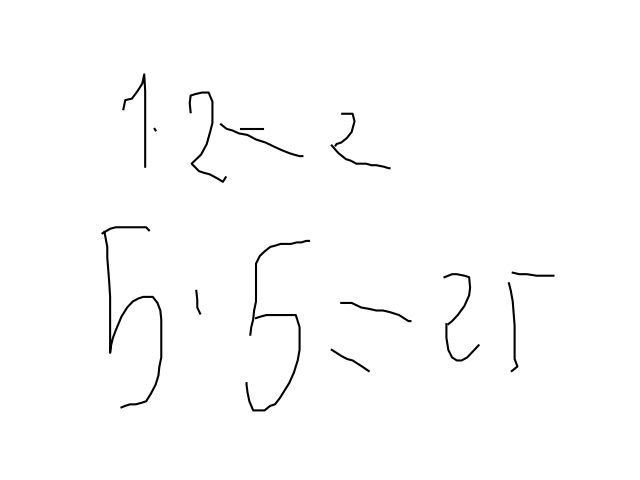 1·2=2
5·5=25